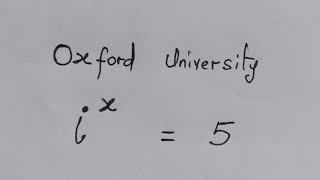 Oxford University
i^x = 5